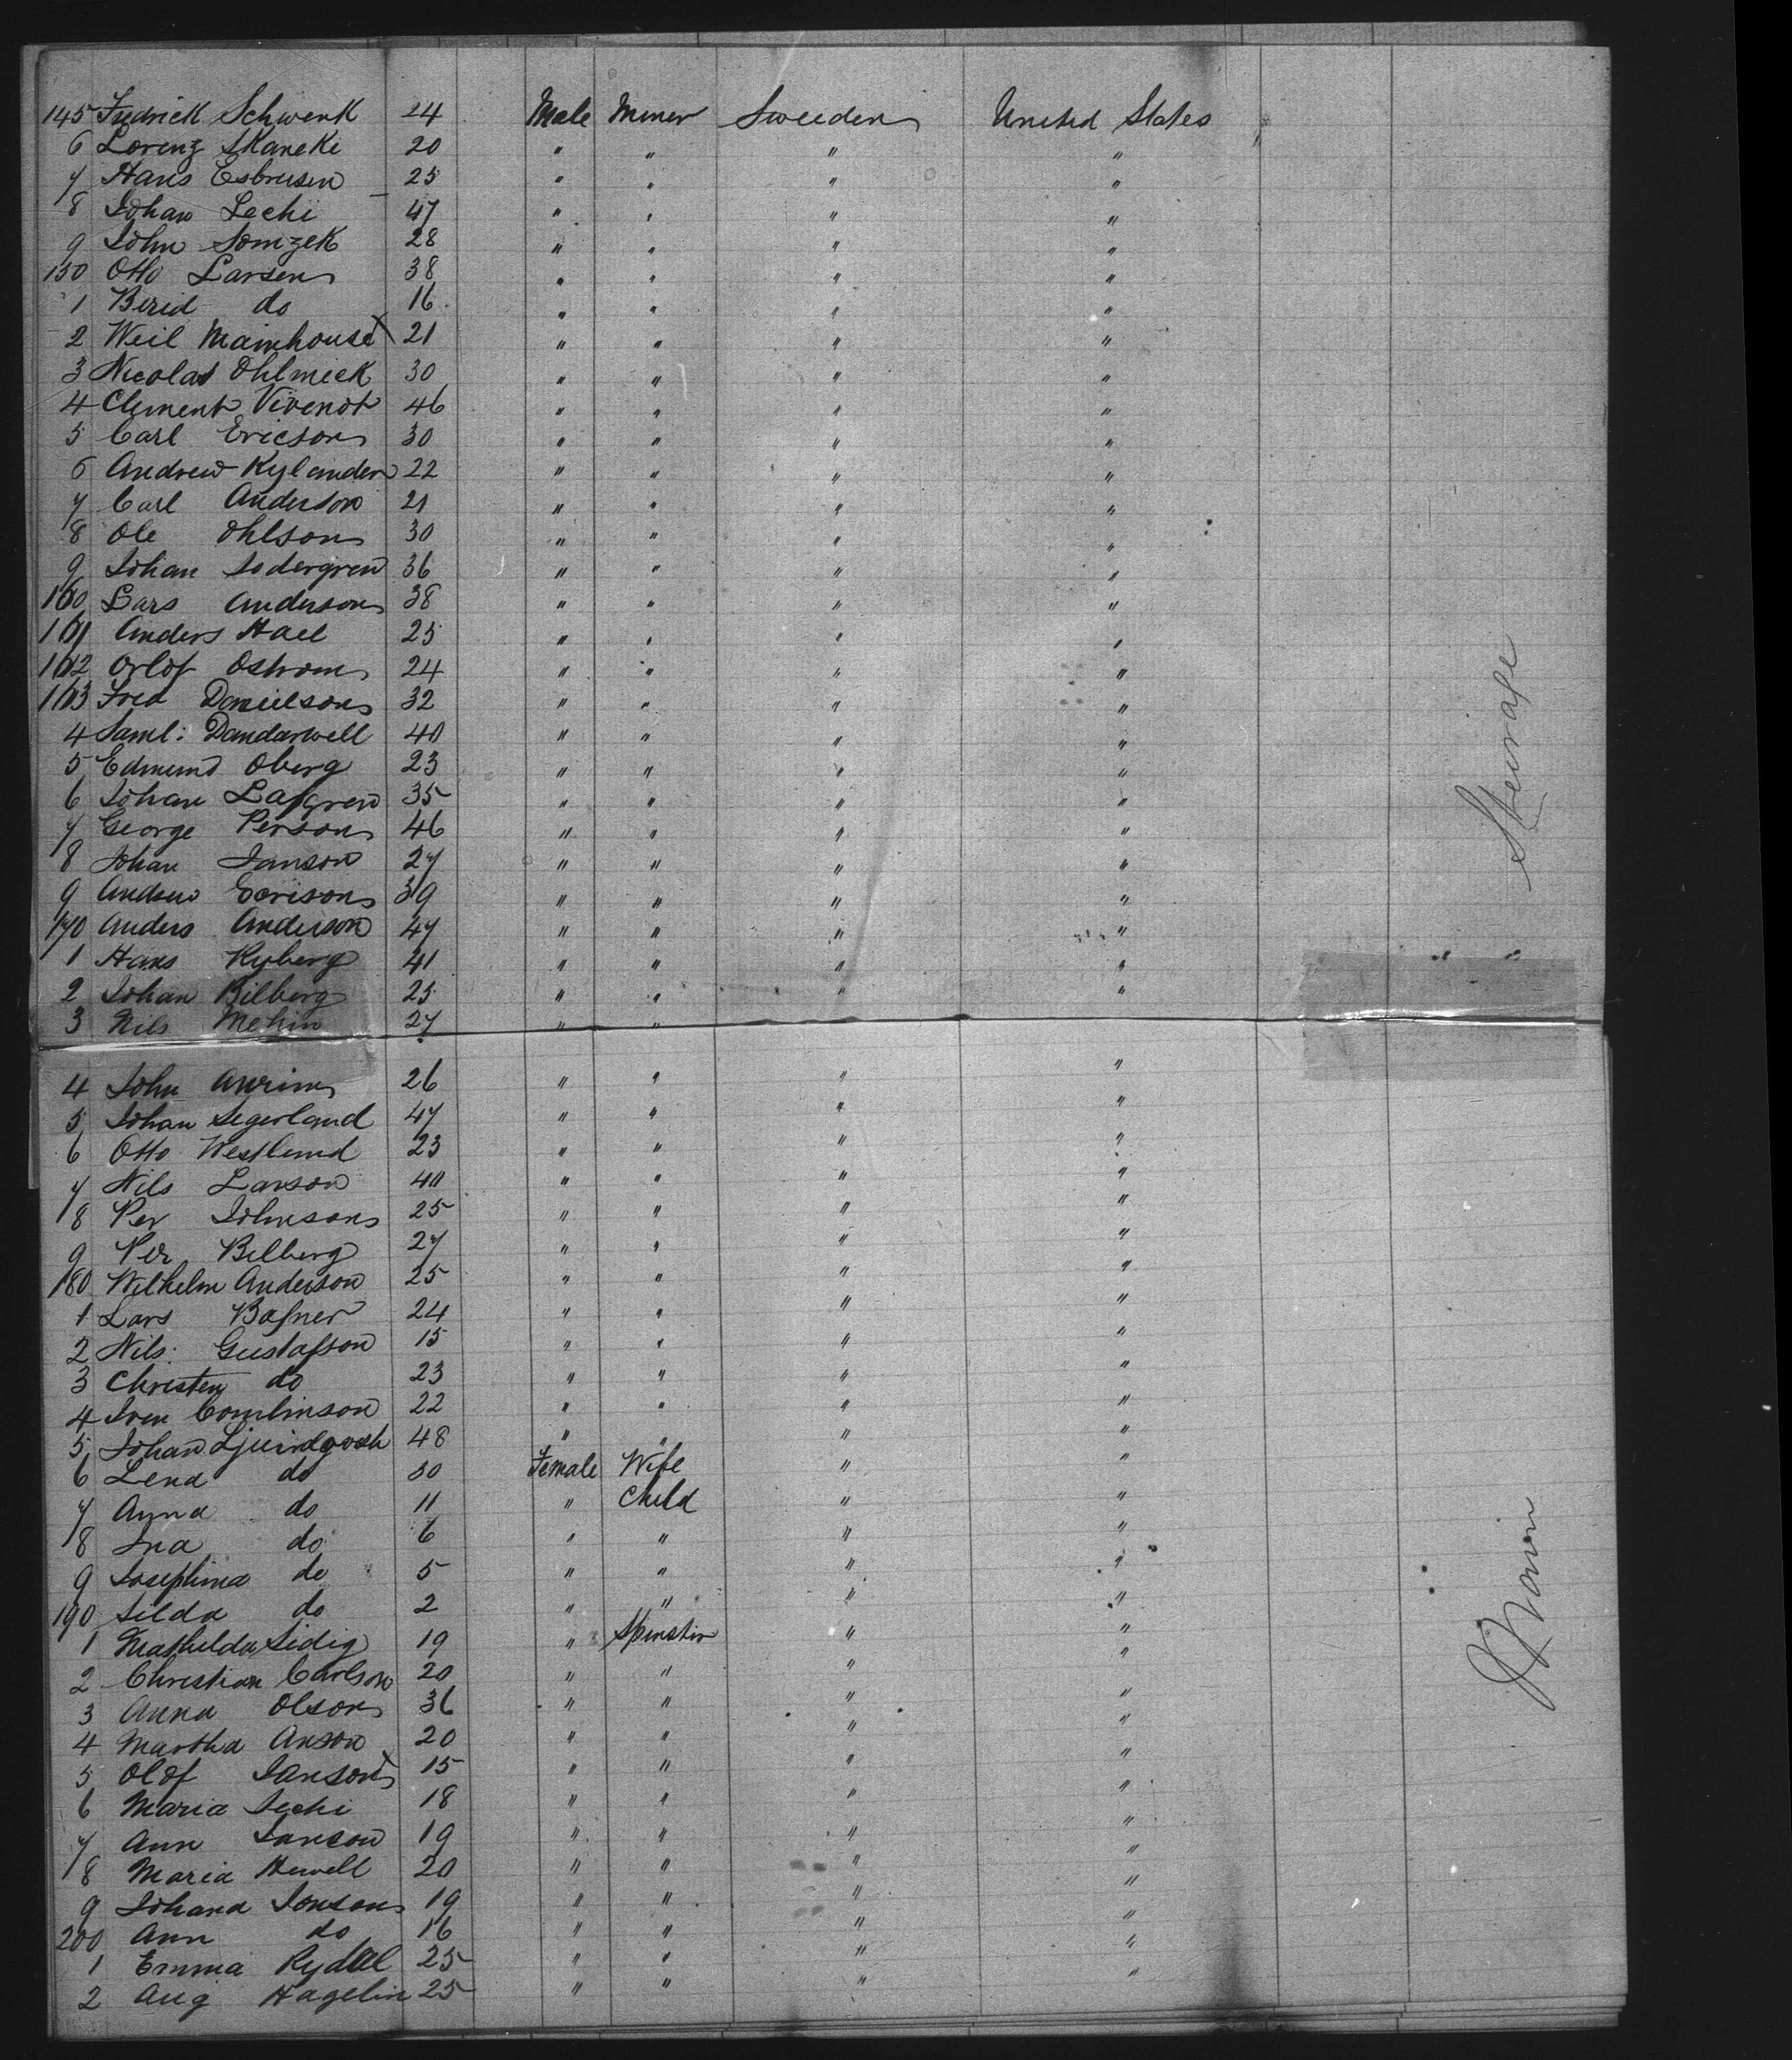 145 Fredrick Schwenk 24 Male Miner Sweeden United States
6 Lorenz Skaneki 20 " " " "
7 Hans Esbrusen 25 " " " "
8 Johan Lechi 47 " " " "
9 John Somzek 28 " " " "
150 Otto Larsen 38 " " " "
1 Berid do 16 " " " "
2 Weil Mainhouse 21 " " " "
3 Nicolas Ohlmick 30 " " " "
4 Clement Vivenot 46 " " " "
5 Carl Ericson 30 " " " "
6 Andrew Kylander 22 " " " "
7 Carl Anderson 21 " " " "
8 Ole Ohlson 30 " " " "
9 Johan Sodergren 36 " " " "
160 Lars Anderson 38 " " " "
161 Anders Hael 25 " " " "
162 Orlof Ostrom 24 " " " "
163 Fred Danielson 32 " " " "
4 Saml: Dandarwell 40 " " " "
5 Edmund Oberg 23 " " " "
6 Johan Lafgren 35 " " " "
7 George Person 46 " " " "
8 Johan Janson 27 " " " "
9 Andrew Ecrison 39 " " " "
170 Anders Anderson 47 " " " "
1 Hans Kyberg 41 " " " "
2 Johan Bilberg 25 " " " "
3 Nils Mehin 27 " "
4 John 26 " " " "
5 Johan Segerland 47 " " " "
6 Otto Westlund 23 " " " "
7 Nils Larson 40 " " " "
8 Per Johnson 25 " " " "
9 Per Bilberg 27 " " " "
180 Wilhelm Anderson 25 " " " "
1 Lars Bafner 24 " " " "
2 Nils: Gustafson 15 " " " "
3 Christen do 23 " " " "
4 Iven Comlinson 22 " " " "
5 Johan 48 " " " "
6 Lena do 30 Female Wife " "
7 Anna do 11 " Child " "
8 Ina do 6 " " " "
9 Josephina do 5 " " " "
190 Silda do 2 " " " "
1 Mathilda Sidig 19 " Spinster " "
2 Christian Carlson 20 " " " "
3 Anna Olson 36 " " " "
4 Martha Anson 20 " " " "
5 Olof Janson 15 " " " "
6 Maria Sechi 18 " " " "
7 Ann Janson 19 " " " "
8 Maria Hewell 20 " " " "
9 Johana Jonson 19 " " " "
200 Ann do 16 " " " "
1 Emma Rydal 25 " " " "
2 Aug Hagelin 25 " " " "
Steerage